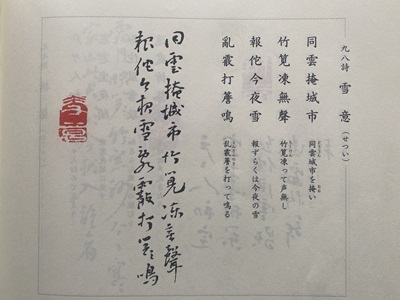 九八詩 雪意(せつい)
同雲掩城市 同雲城市を掩い
竹筧凍無聲 竹筧凍って声無し
報佗今夜雪 報ずらくは今夜の雪
亂霰打簷鳴 亂霰簷を打って鳴る
同雲掩城市竹筧凍無聲
報佗今夜雪亂霰打簷鳴